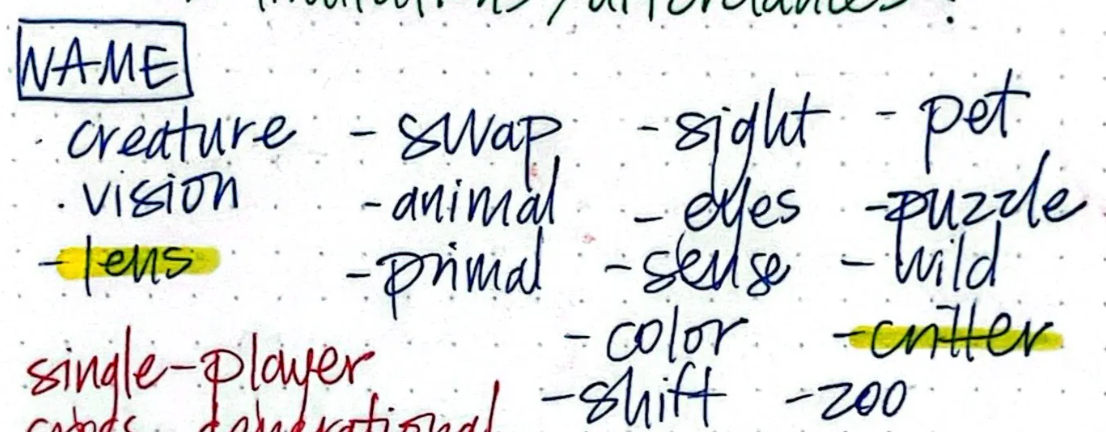 NAME
. creature - swap - sight - pet
. vision - animal - eyes - puzzle
- lens - primal - sense - wild
- color - critter
single-player
- shift - zoo